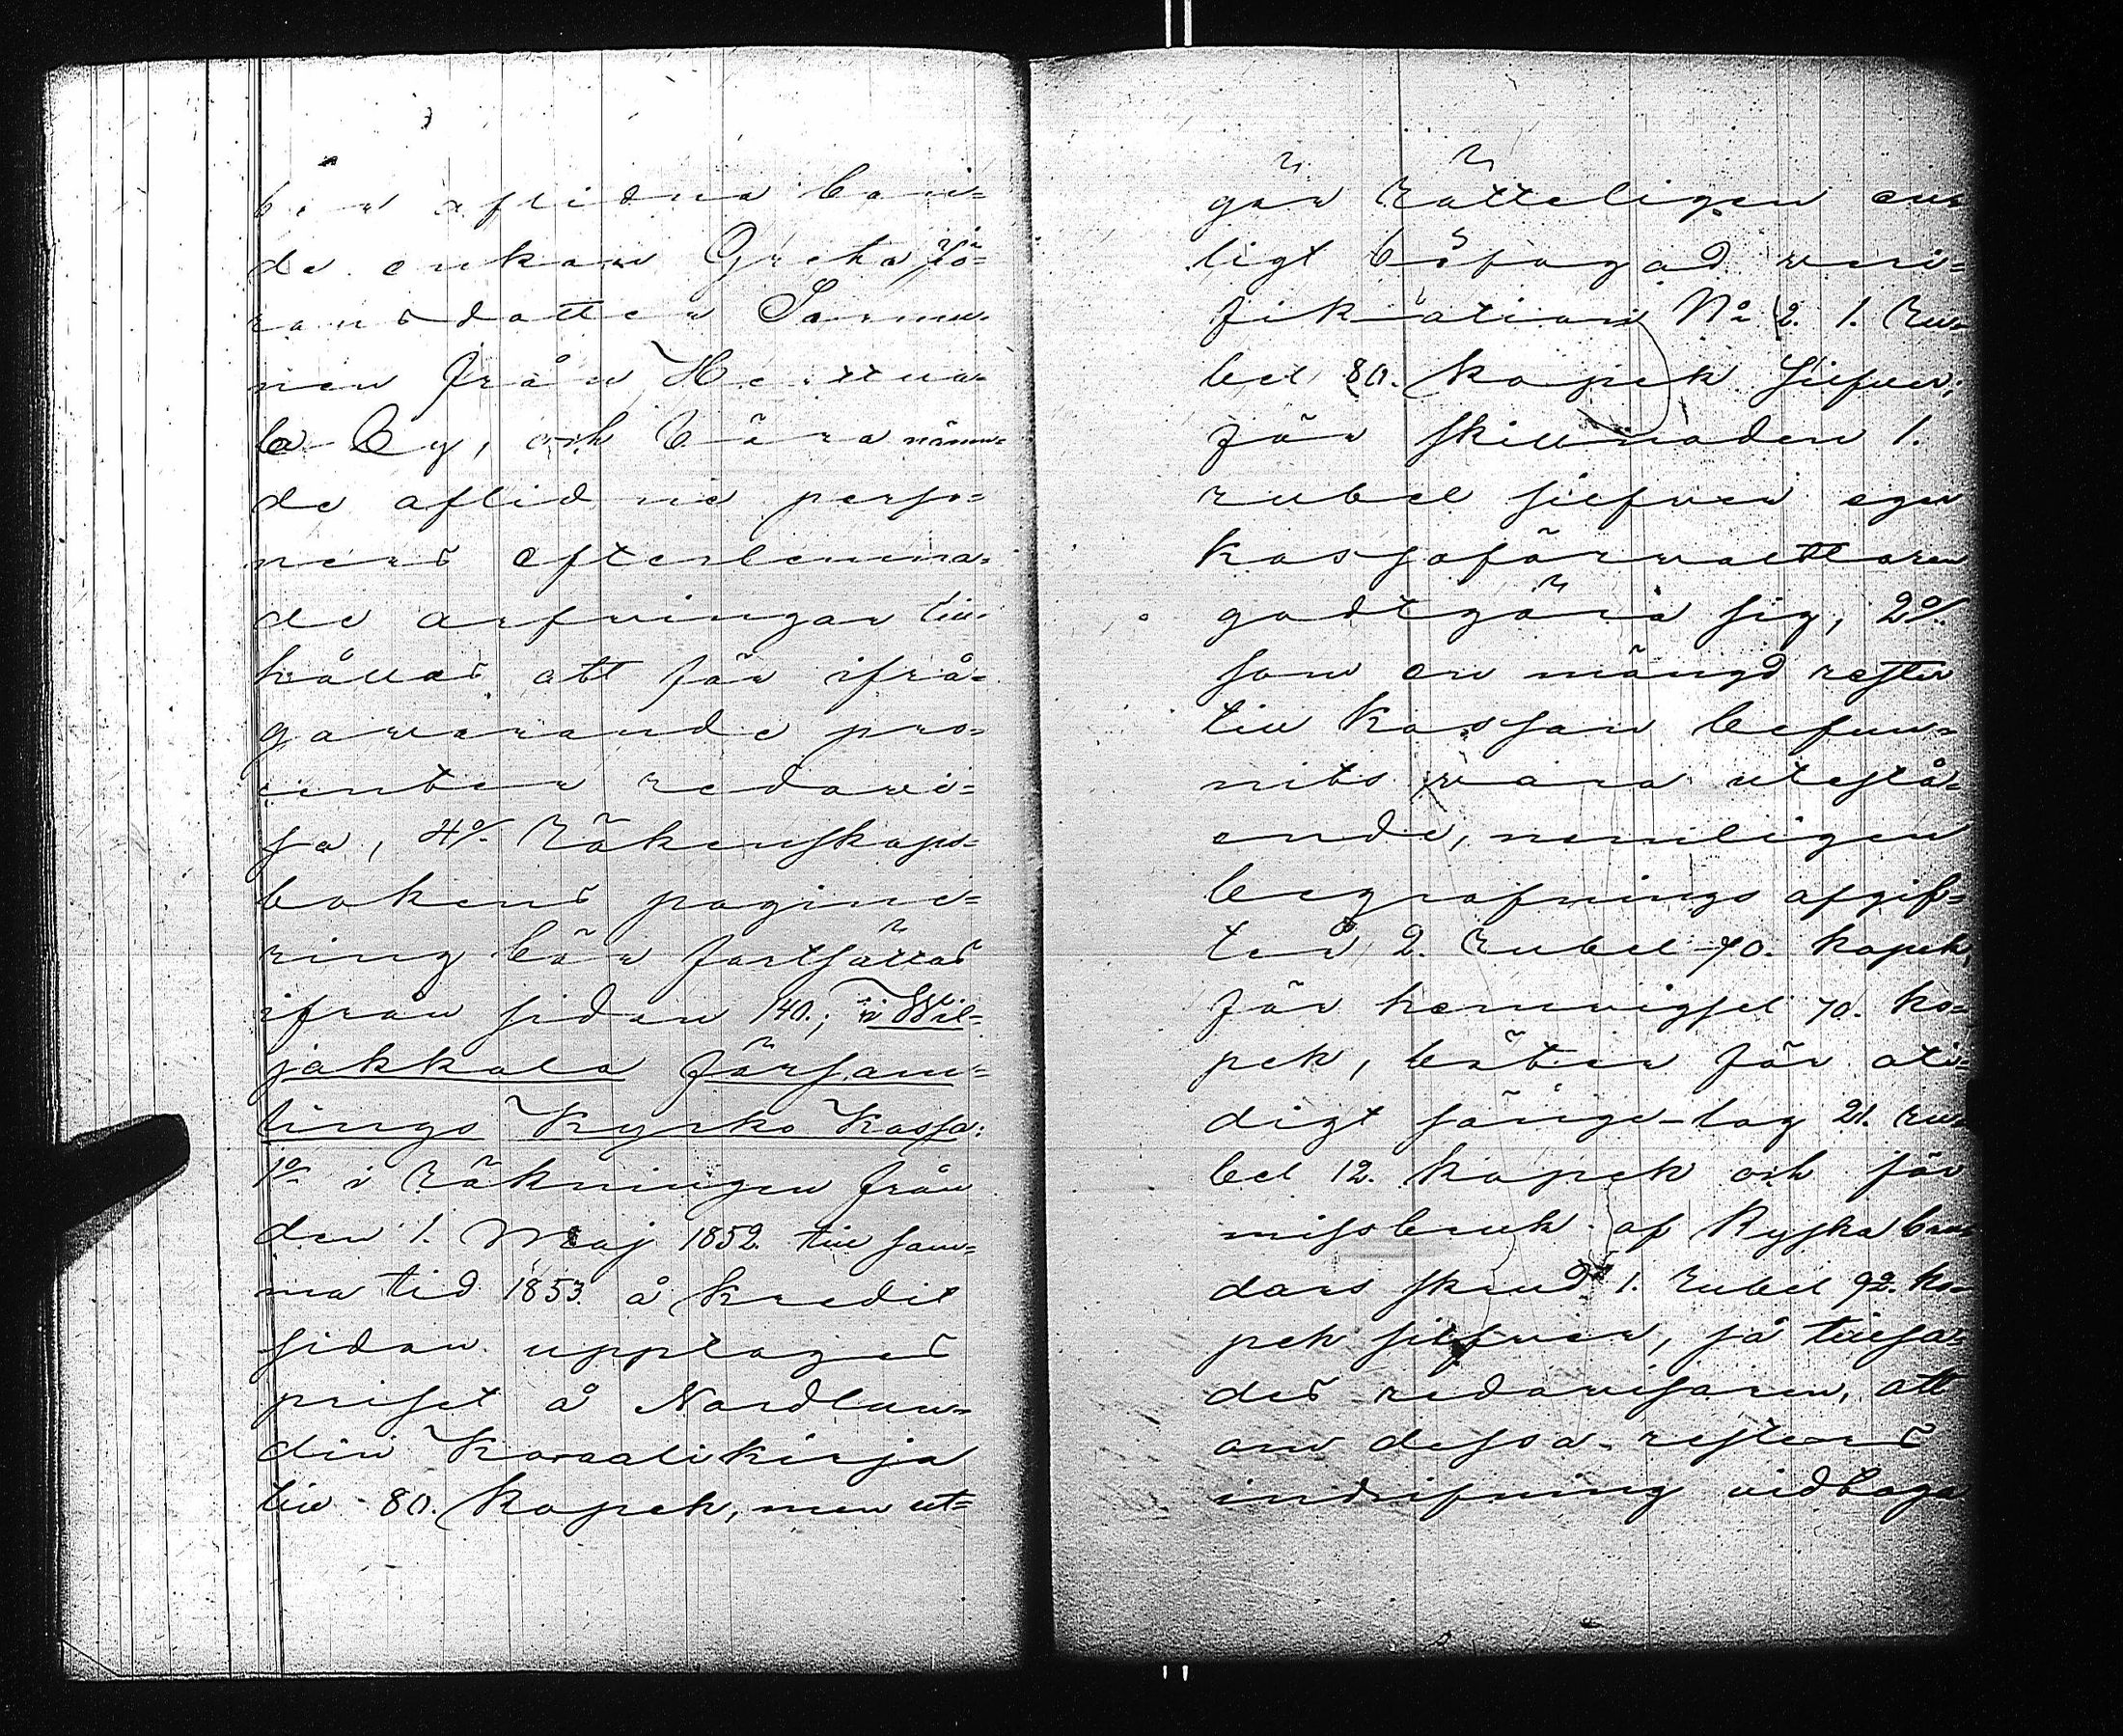 aflidna bon-
de enkan Greta Jö-
ransdotter Sarmu-
nen från
by, och böra nämn-
de aflidne perso-
ners efterlemna-
de arfvingar till-
hållas att för ifrå-
gavarande pro-
center redovi-
sa, 4o/. Räkenskaps-
bokens pagine-
ring bör fortsättas
ifrån sidan 140.; i Wil-
jakkala Församl-
lings Kyrko Kassa:
1o/ i Räkningen från
den 1. Maj 1852. till sam-
ma tid 1853. å kredit
sidan upptages
priset å Nordlun-
din Koraalikirja
till 80. Kopek, men ut-
gör rätteligen en-
ligt bifogad veri-
fikation No 2. 1. Ru-
bel 80. Kopek Silfver;
för skillnaden 1.
rubel silfver eger
Kassaförvaltaren
godtgöra sig; 2o/.
som en mängd rester
till Kassan befun-
nits vara utestå-
ende, nemligen
begrafnings afgif-
ter 2. Rubel 70. Kopek,
för hemvigsel 70. ko-
pek, böter för oti-
digt sänge-lag 21. ru-
bel 12. Kopek och för
missbruk af Ryska bru-
dars skrud 1. Rubel 92. ko-
pek silfver, så tillsa-
des redovisaren, att
om dessa resters
indrifning vidtaga